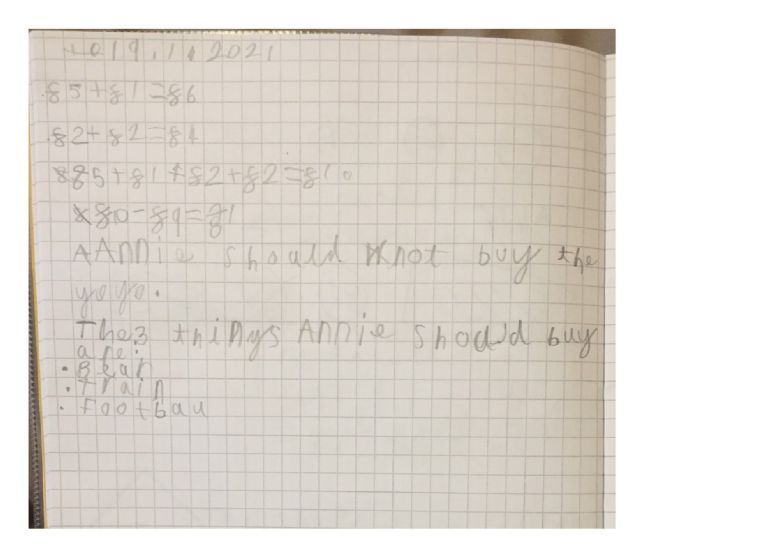 19.1.2021
£5+£1=£6
£2+£2=£4
£5+£1+£2+£2=£10
£10-£9=£1
Annie should not buy the
yoyo.
The 3 things Annie should buy
are:
• Bear
• Train
• Football